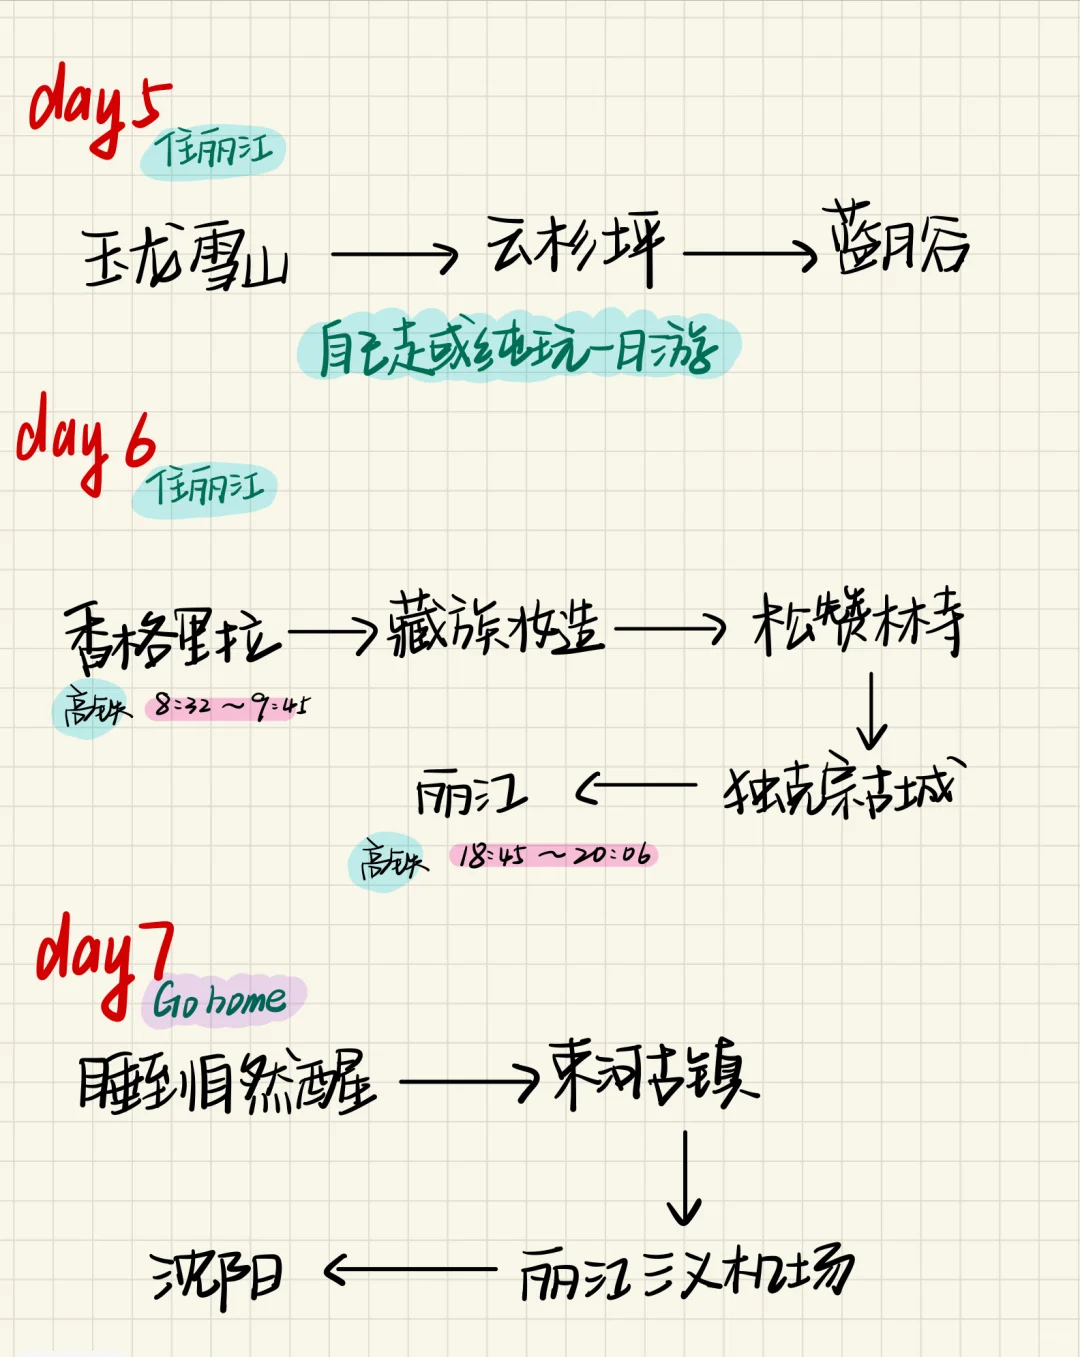 day5
住丽江
玉龙雪山 → 云杉坪 → 蓝月谷
自己走或纯玩一日游
day 6
住丽江
香格里拉 → 藏族妆造 → 松赞林寺
高铁 8:32～9:45
↓
丽江 ← 独克宗古城
高铁 18:45～20:06
day7
Go home
睡到自然醒 → 束河古镇
↓
沈阳 ← 丽江三义机场